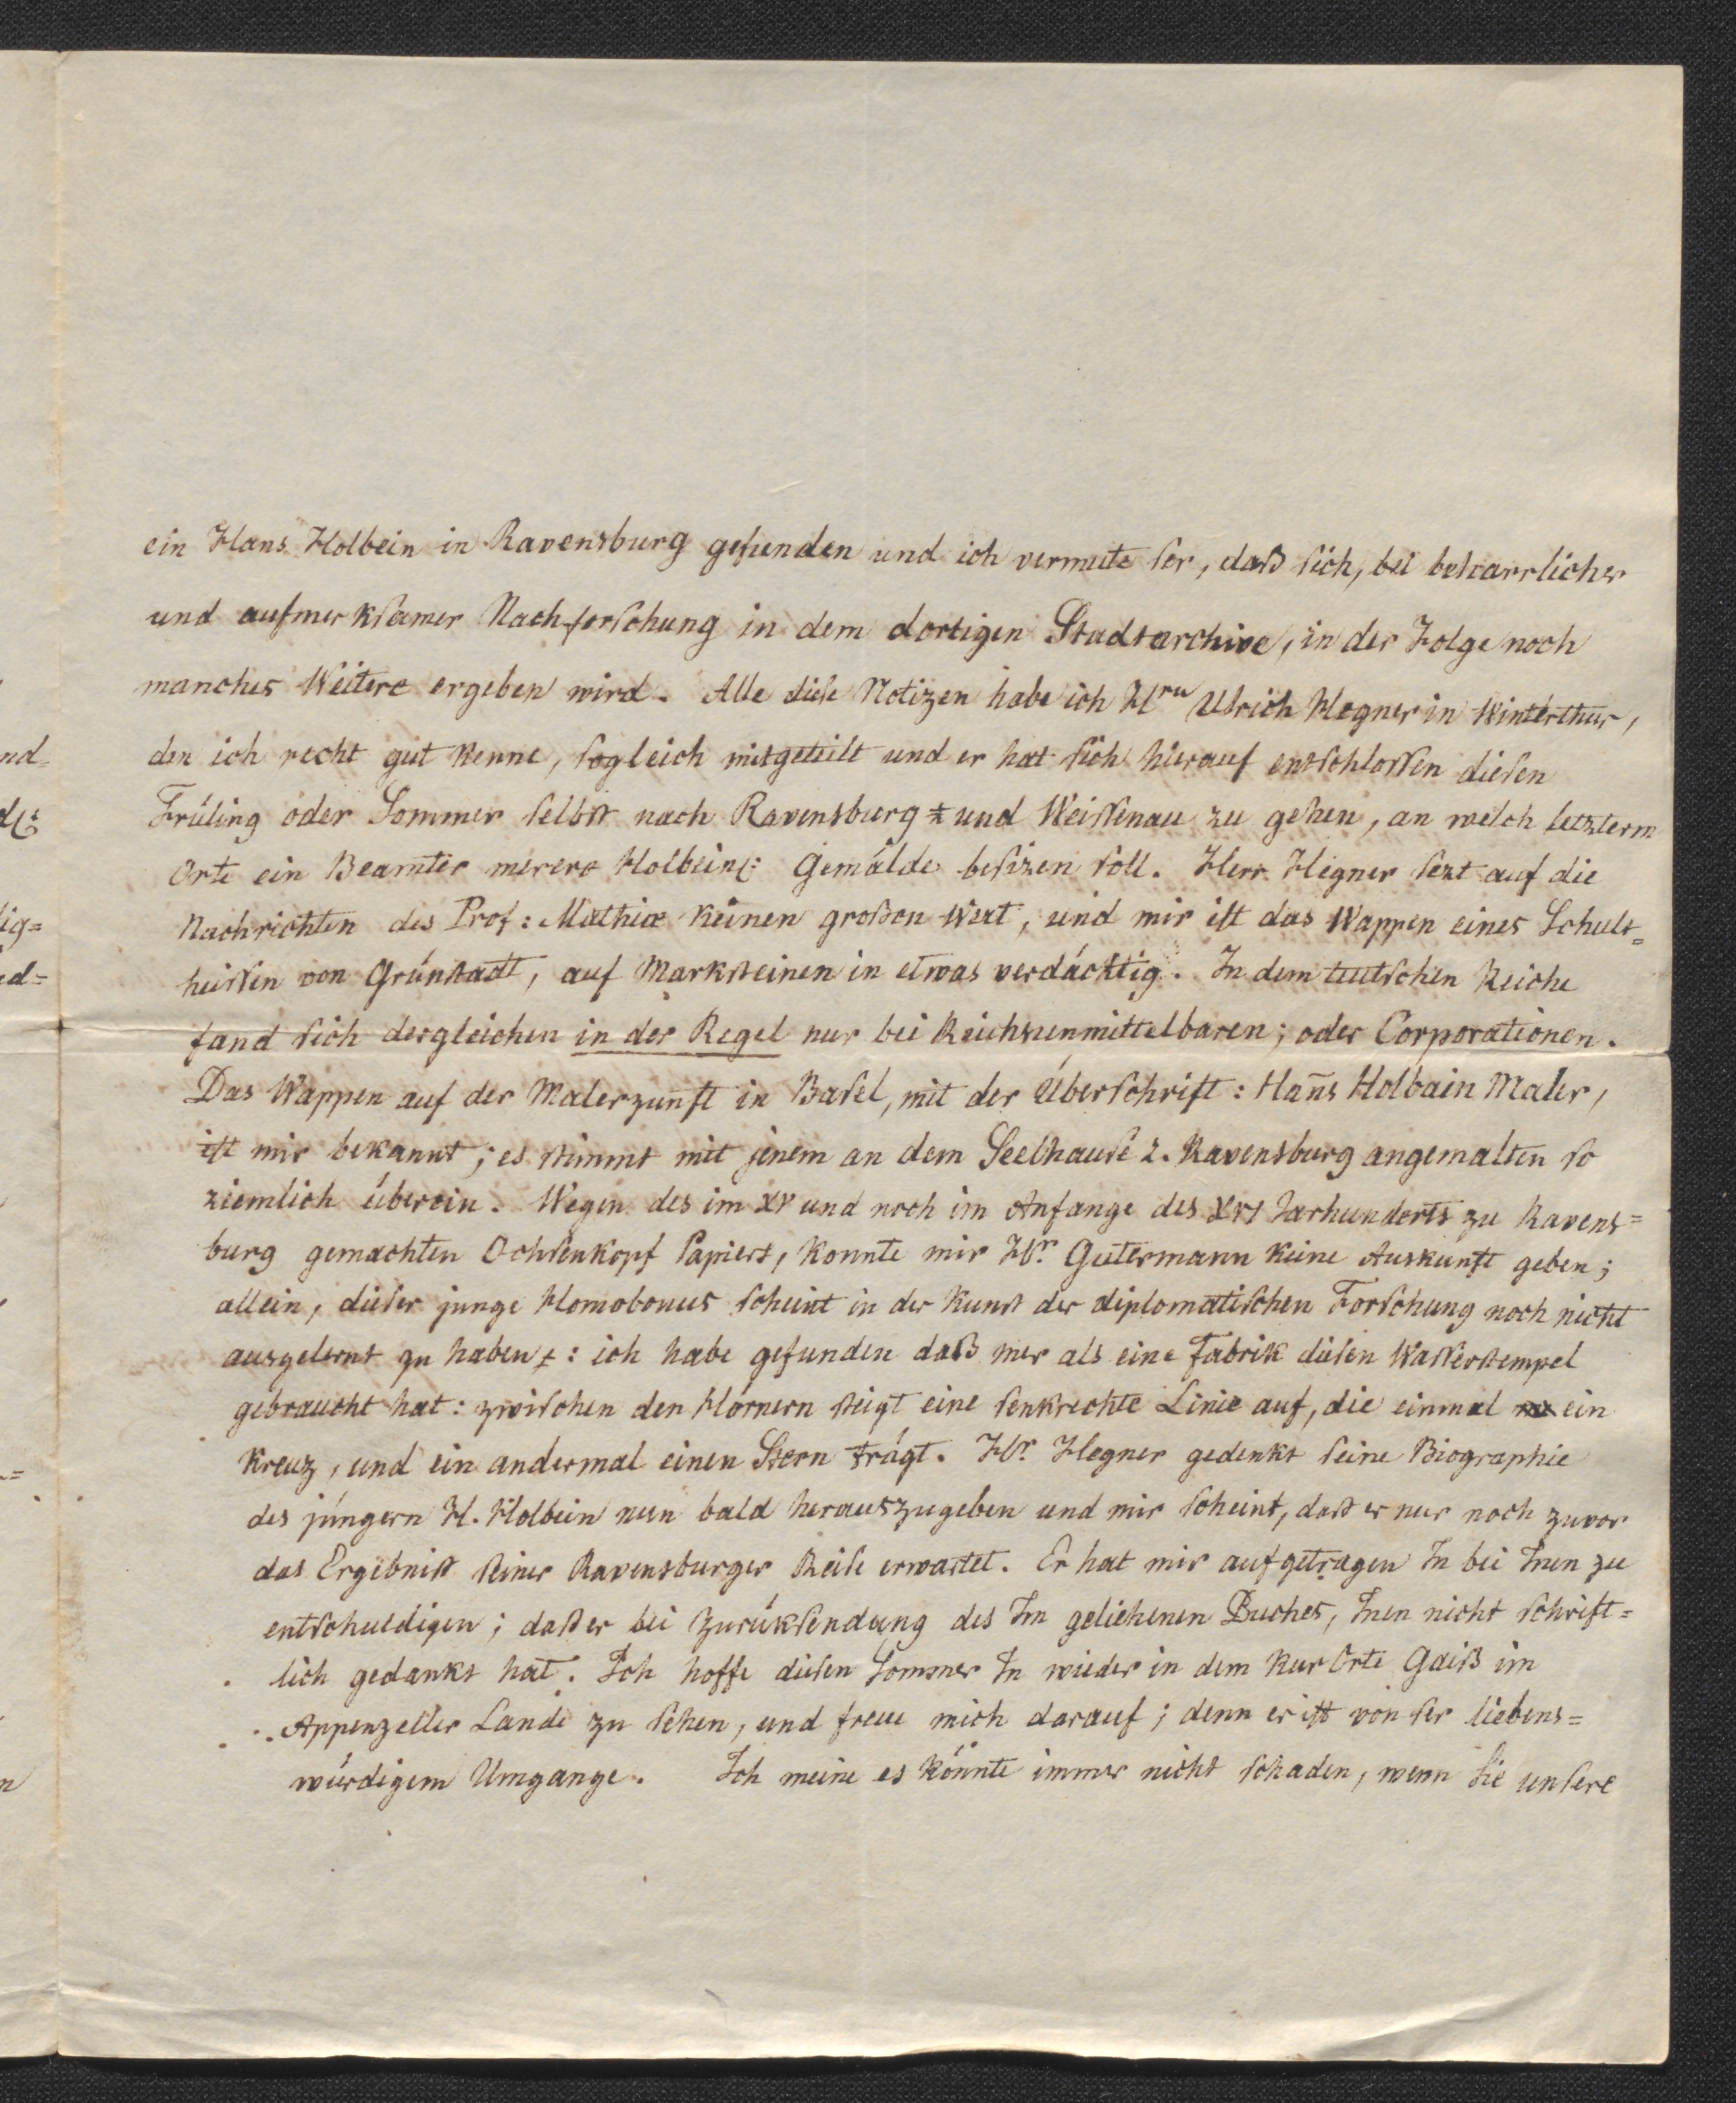 ein Hans Holbein in Ravensburg gefunden und ich vermute ser, daß sich, bei beharrlicher
und aufmerksamer Nachforschung in dem dortigen Stadtarchive, in der Folge noch
manches Weitere ergeben wird. Alle diese Notizen habe ich Hrn Ulrich Hegner in Winterthur,
den ich recht gut kenne, sogleich mitgeteilt und er hat sich hierauf entschlossen diesen
Früling oder Sommer selbst nach Ravensburg und Weissenau zu gehen, an welch letzterm
Orte ein Beamter merere Holbein: Gemälde besizen soll. Herr Hegner sezt auf die
Nachrichten des Prof: Mathiæ keinen großen Wert, und mir ist das Wappen eines Schult=
heissen von Grünstadt, auf Marksteinen in etwas verdächtig. In dem teutschen Reiche
fand sich dergleichen in der Regel nur bei Reichsunmittelbaren; oder Corporationen.
Das Wappen auf der Malerzunft in Basel, mit der Überschrift: Hañs Holbain Maler,
ist mir bekannt; es stimmt mit jenem an dem Seelhause z. Ravensburg angemalten so
ziemlich überein. Wegen des im XV und noch im Anfange des XVI Jarhunderts zu Ravens=
burg gemachten Ochsenkopf Papiers, konnte mir Hr. Gutermann keine Auskunft geben;
allein, dieser junge Homobonus scheint in der Kunst der diplomatischen Forschung noch nicht
ausgelernt zu haben: ich habe gefunden daß mer als eine Fabrik diesen Wasserstempel
gebraucht hat: zwischen den Hörnern steigt eine senkrechte Linie auf, die einmal ein
Kreuz, und ein andermal einen Stern trägt. Hr. Hegner gedenkt seine Biographie
des jüngern H. Holbein nun bald herauszugeben und mir scheint, daß er nur noch zuvor
das Ergebniß seiner Ravensburger Reise erwartet. Er hat mir aufgetragen In bei Inen zu
entschuldigen; daß er bei Zurüksendung des Im geliehenen Buches, Inen nicht schrift=
lich gedankt hat. Ich hoffe diesen Sommer In wieder in dem Kur Orte Gaiß im
Appenzeller Lande zu sehen, und freue mich darauf; denn er ist von ser liebens=
würdigem Umgange. Ich meine es könnte immer nicht schaden, wenn Sie unsere